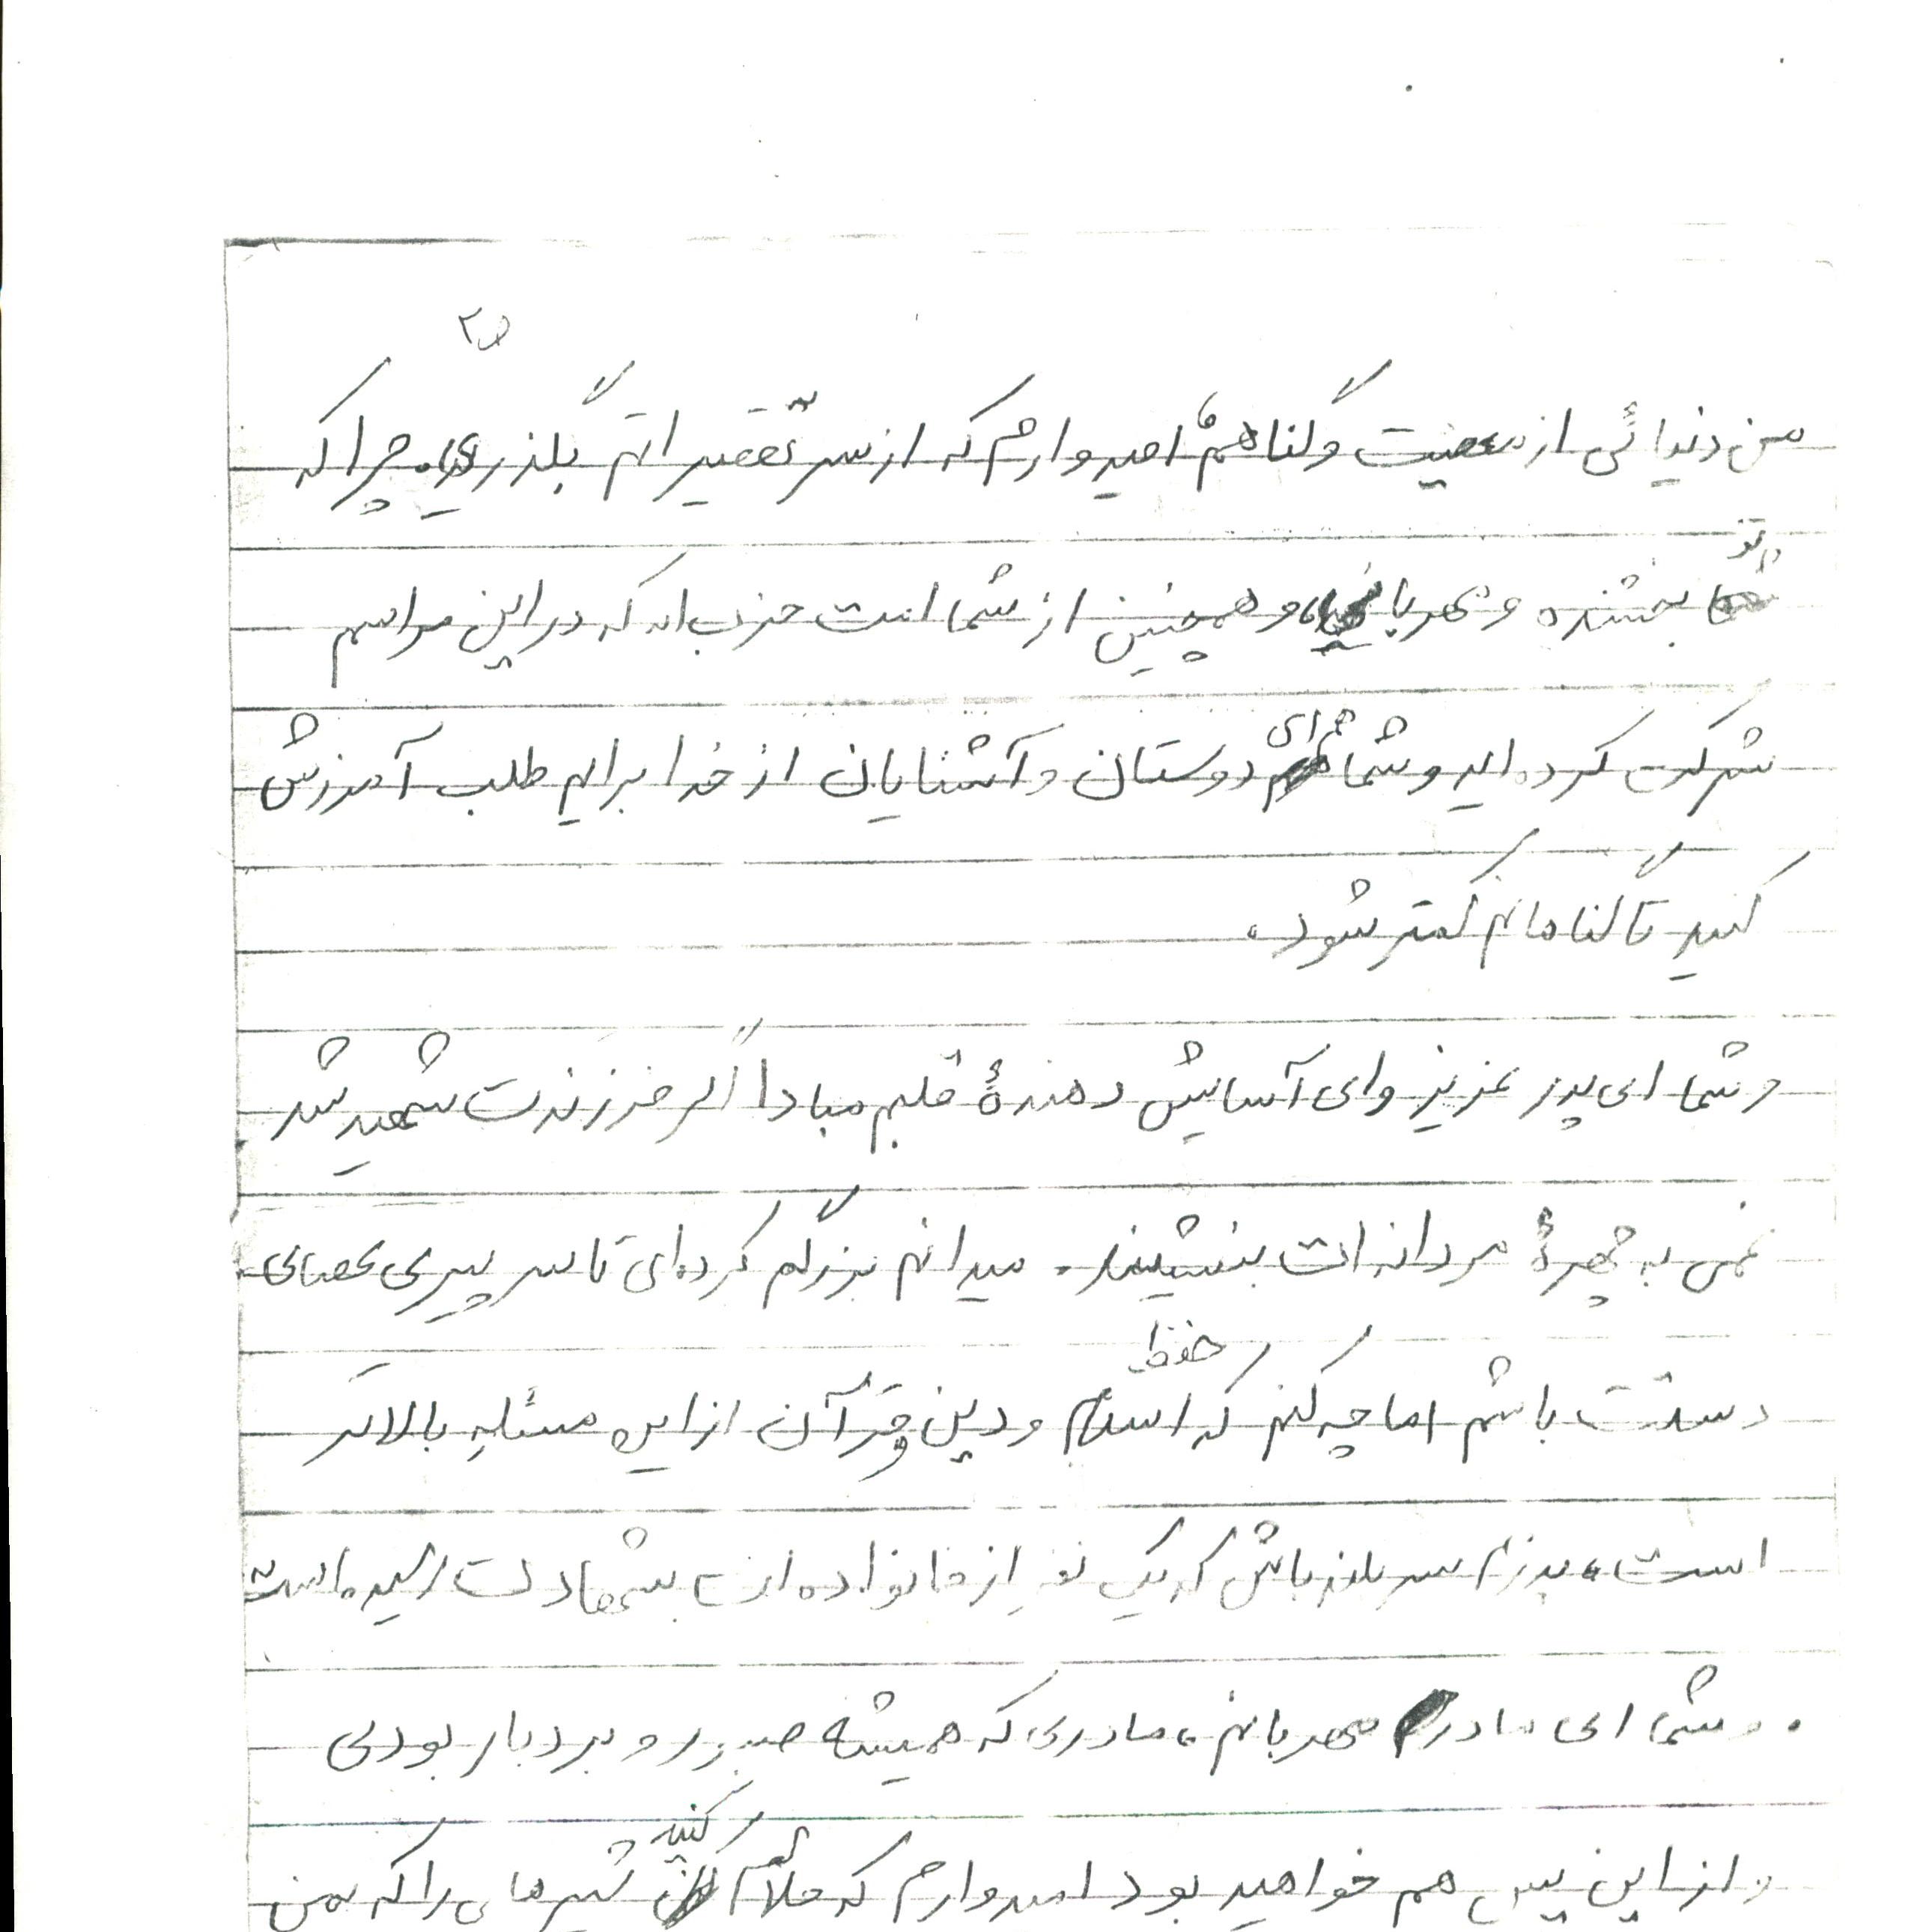 ۲۵
من دنیائی از معصیت و گناهم، امیدوارم که از سر تقصیراتم بگذری. چرا که
تو بخشنده و مهربانی و همچنین از شما امت حزب اله که در این مراسم
شرکت کرده اید و شما ای دوستان و آشنایان از خدا برایم طلب آمرزش
کنید تا گناهانم کمتر شود.
و شما ای پدر عزیز و ای آسایش دهندهٔ قلبم مبادا اگر فرزندت شهید شد
غمی به چهرهٔ مردانه ات بنشیند. میدانم بزرگم کرده ای تا سر پیری عصای
دستت باشم اما چه کنم که حفظ اسلام و دین و قرآن از این مسئله بالاتر
است، پدرم سربلند باش که یک نفر از خانواده ات بشهادت رسیده است
. و شما ای مادر مهربانم، مادری که همیشه صبور و بردبار بودی
و از این پس هم خواهید بود امیدوارم که حلالم کنید شیرهای را که بمن